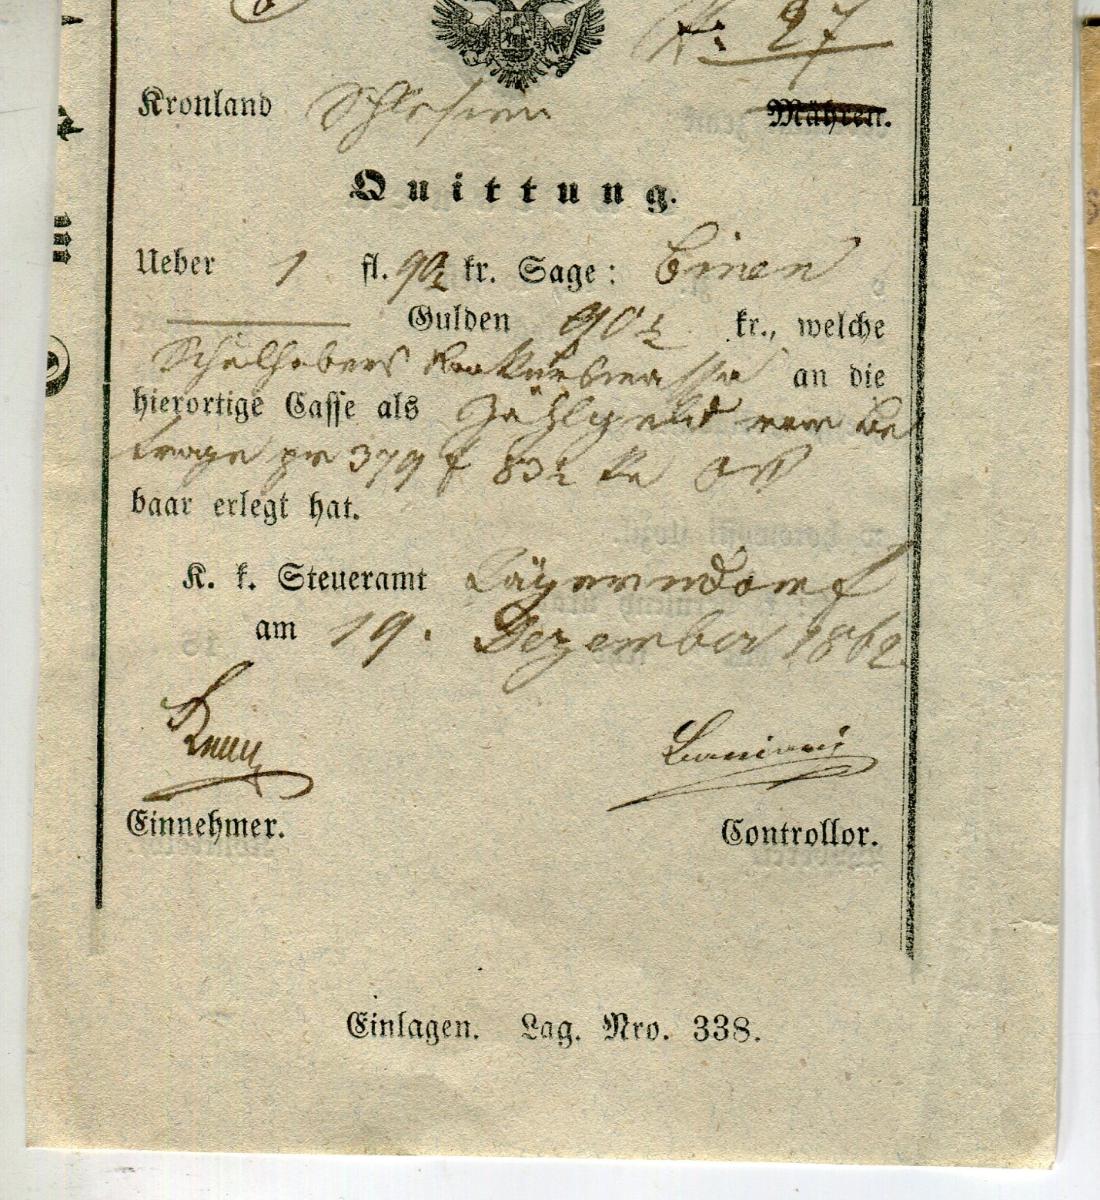 N: 27
Kronland Schlesien Mähren.
Quittung.
Ueber 1 fl. 90½ kr. Sage: Einen
Gulden 90½ kr., welche
an die
hierortige Casse als Zählgeld vom Be
trage pr 379 f 83½ kr ÖW
baar erlegt hat.
K. k. Steueramt Jägerndorf
am 19. Dezember 1862
Einnehmer. Controllor.
Einlagen. Lag. Nro. 338.